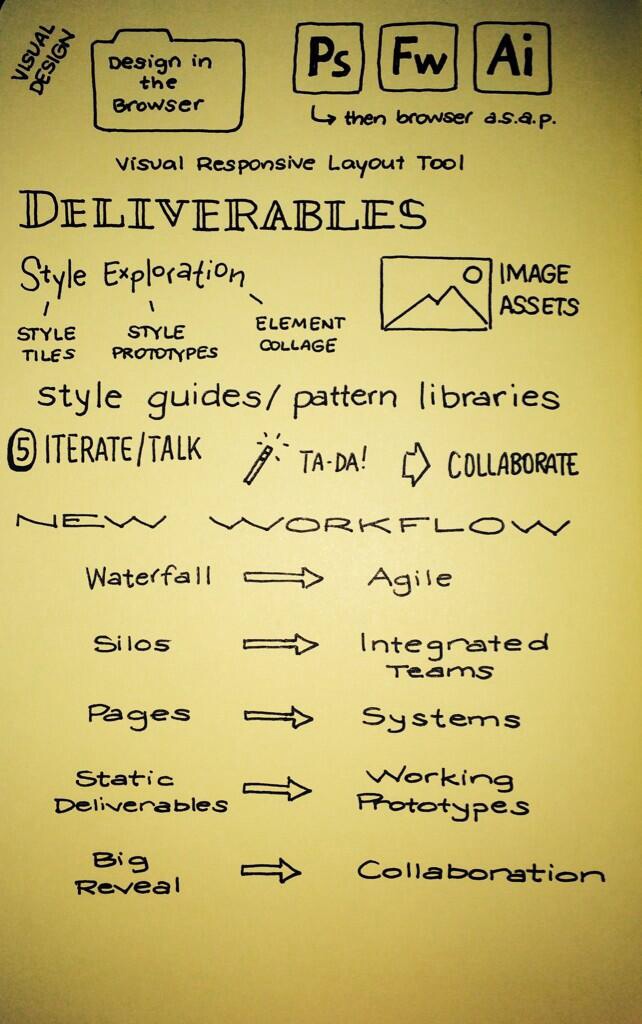 VISUAL
DESIGN
Design in
the
Browser
Ps Fw Ai
then browser a.s.a.p.
Visual Responsive Layout Tool
DELIVERABLES
Style Exploration
STYLE
TILES
STYLE
PROTOTYPES
ELEMENT
COLLAGE
IMAGE
ASSETS
style guides/ pattern libraries
5 ITERATE/TALK TA-DA! COLLABORATE
NEW WORKFLOW
Waterfall Agile
Silos Integrated
Teams
Pages Systems
Static
Deliverables
Working
Prototypes
Big
Reveal
Collaboration